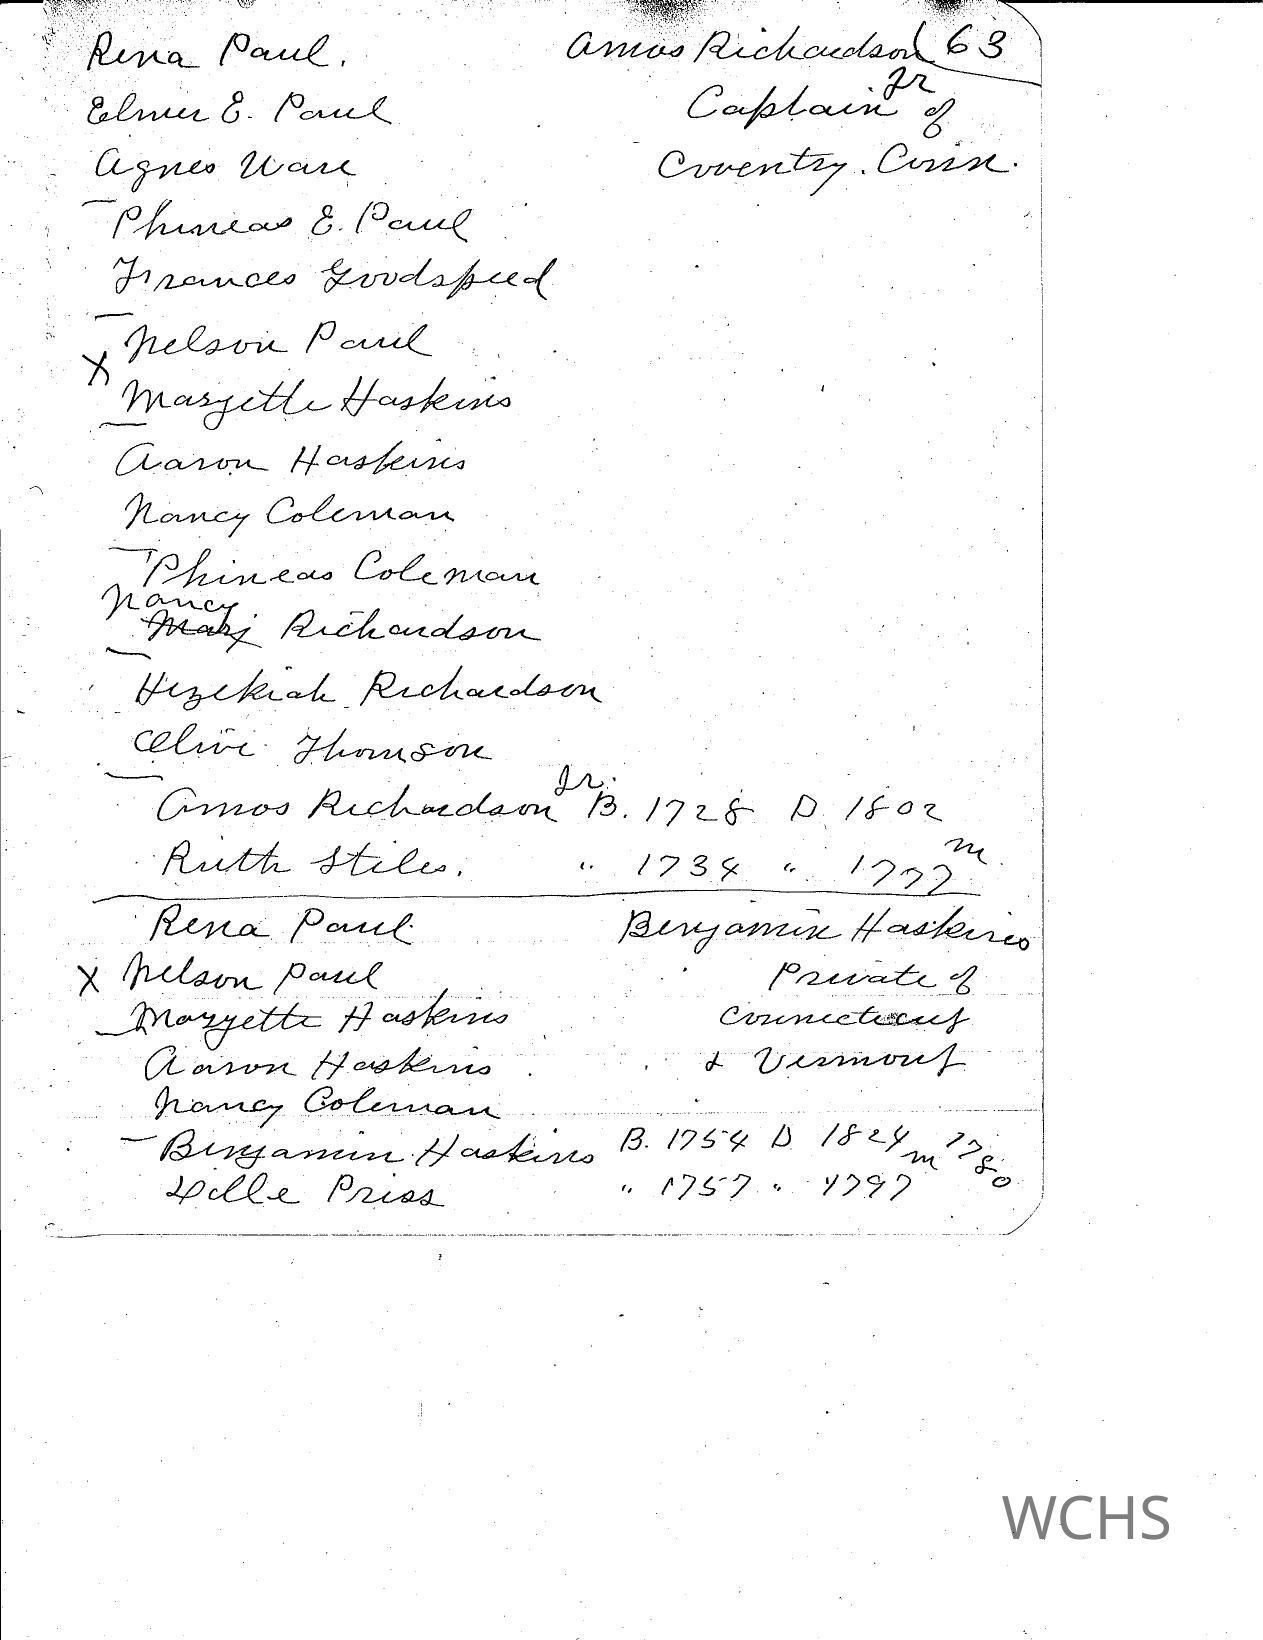 Rena Paul. Amos Richardson 63
Jr
Elmer E. Paul Captain of
Agnes Ware Coventry. Conn.
Phineas E. Paul
Frances Goodspeed
Nelson Paul
X
Maryette Haskins
Aaron Haskins
Nancy Coleman
Phineas Coleman
Nancy
Mary Richardson
Hezekiah Richardson
Olive Thomson
Amos Richardson Jr. B. 1728 D 1802
Ruth Stiles. " 1734 " 1777 m.
Rena Paul Benjamin Haskins
X Nelson Paul Private of
Maryette Haskins Connecticut
Aaron Haskins & Vermont
Nancy Coleman
Benjamin Haskins B. 1754 D 1824 m 1780
" 1757 " 1797